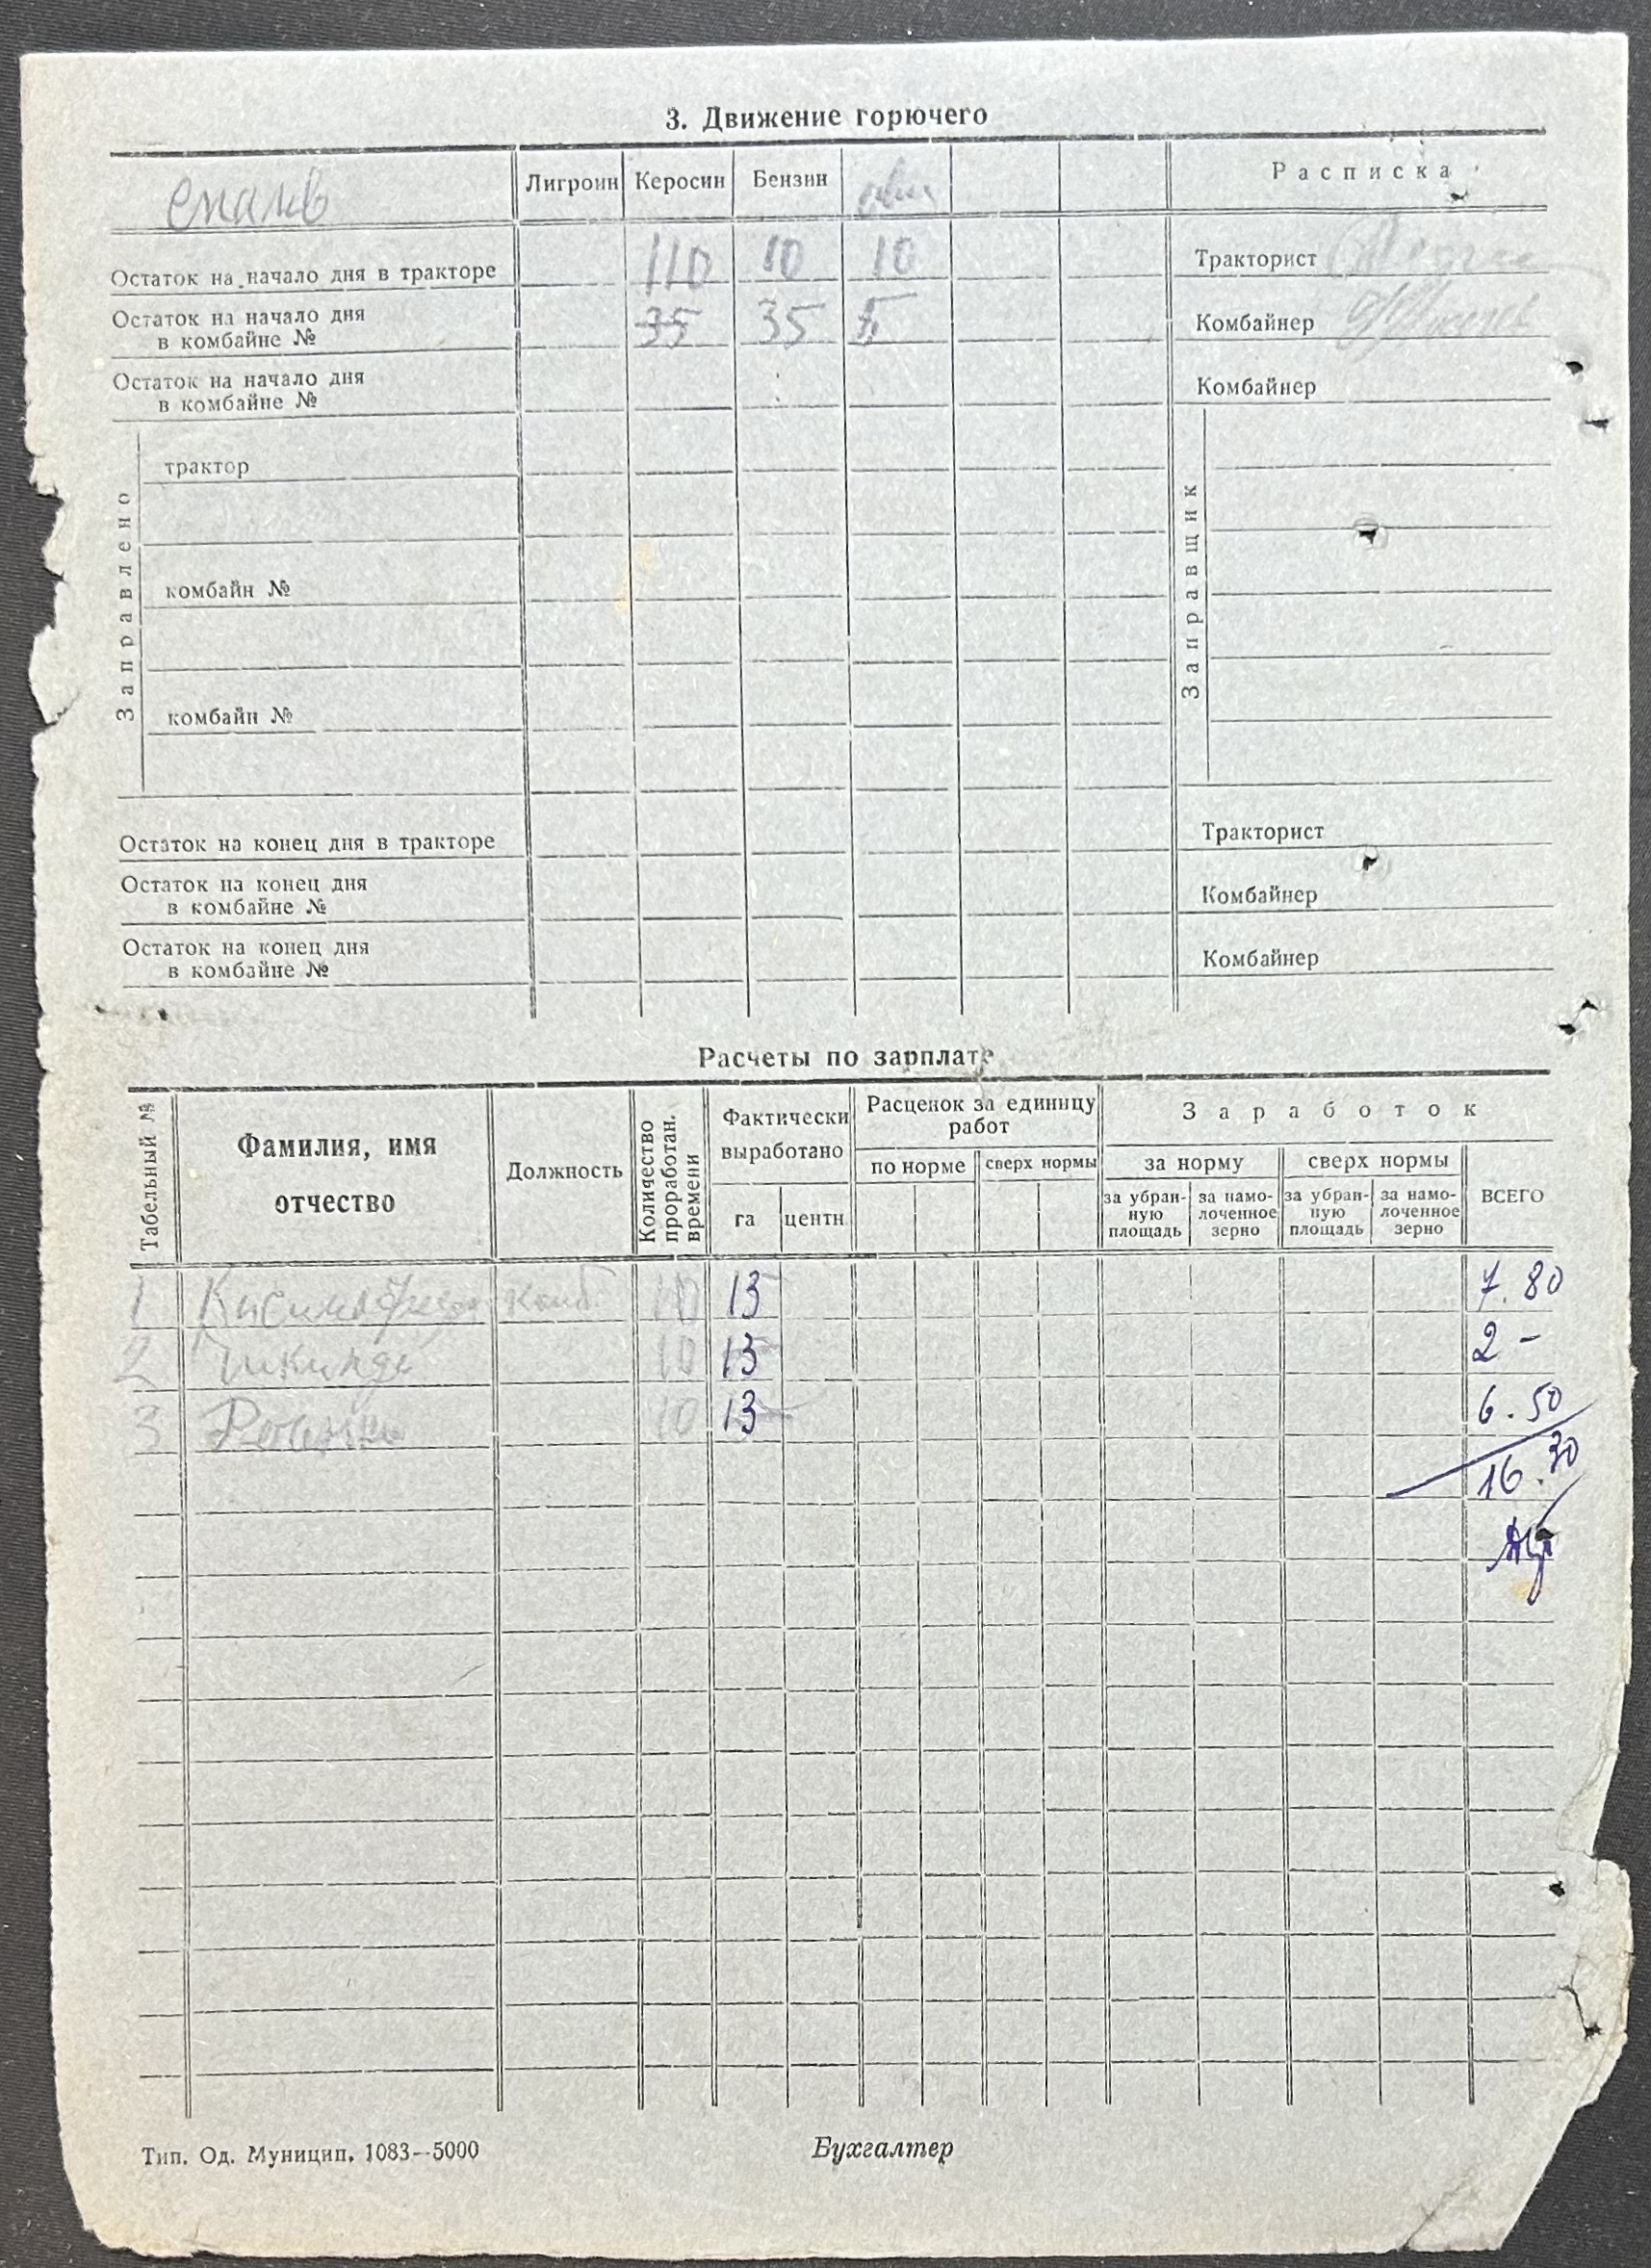 3. Движение горючего
Лигроин Керосин Бензин Расписка
Остаток на начало дня в тракторе 110 10 10 Тракторист
Остаток на начало дня
в комбайне № 35 35 5 Комбайнер
Остаток на начало дня
в комбайне № Комбайнер
Заправлено
трактор
комбайн №
комбайн №
Заправщик
Остаток на конец дня в тракторе Тракторист
Остаток на конец дня
в комбайне № Комбайнер
Остаток на конец дня
в комбайне № Комбайнер
Расчеты по зарплате
Табельный №
Фамилия, имя
отчество
Должность
Количество
проработан.
времени
Фактически
выработано
га центн.
Расценок за единицу
работ
по норме сверх нормы
Заработок
за норму сверх нормы
за убран-
ную
площадь
за намо-
лоченное
зерно
за убран-
ную
площадь
за намо-
лоченное
зерно
ВСЕГО
1 комб. 10 13 7.80
2 10 13 2 -
3 10 13 6.50
16.30
Тип. Од. Муницип. 1083—5000 Бухгалтер